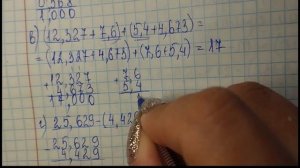 1,000
в) (12,327+7,6)+(5,4+4,673)=
=(12,327+4,673)+(7,6+5,4)=17
12,327
+ 4,673
17,000
+ 7,6
5,4
г) 25,629-(4,429
25,629
- 4,429